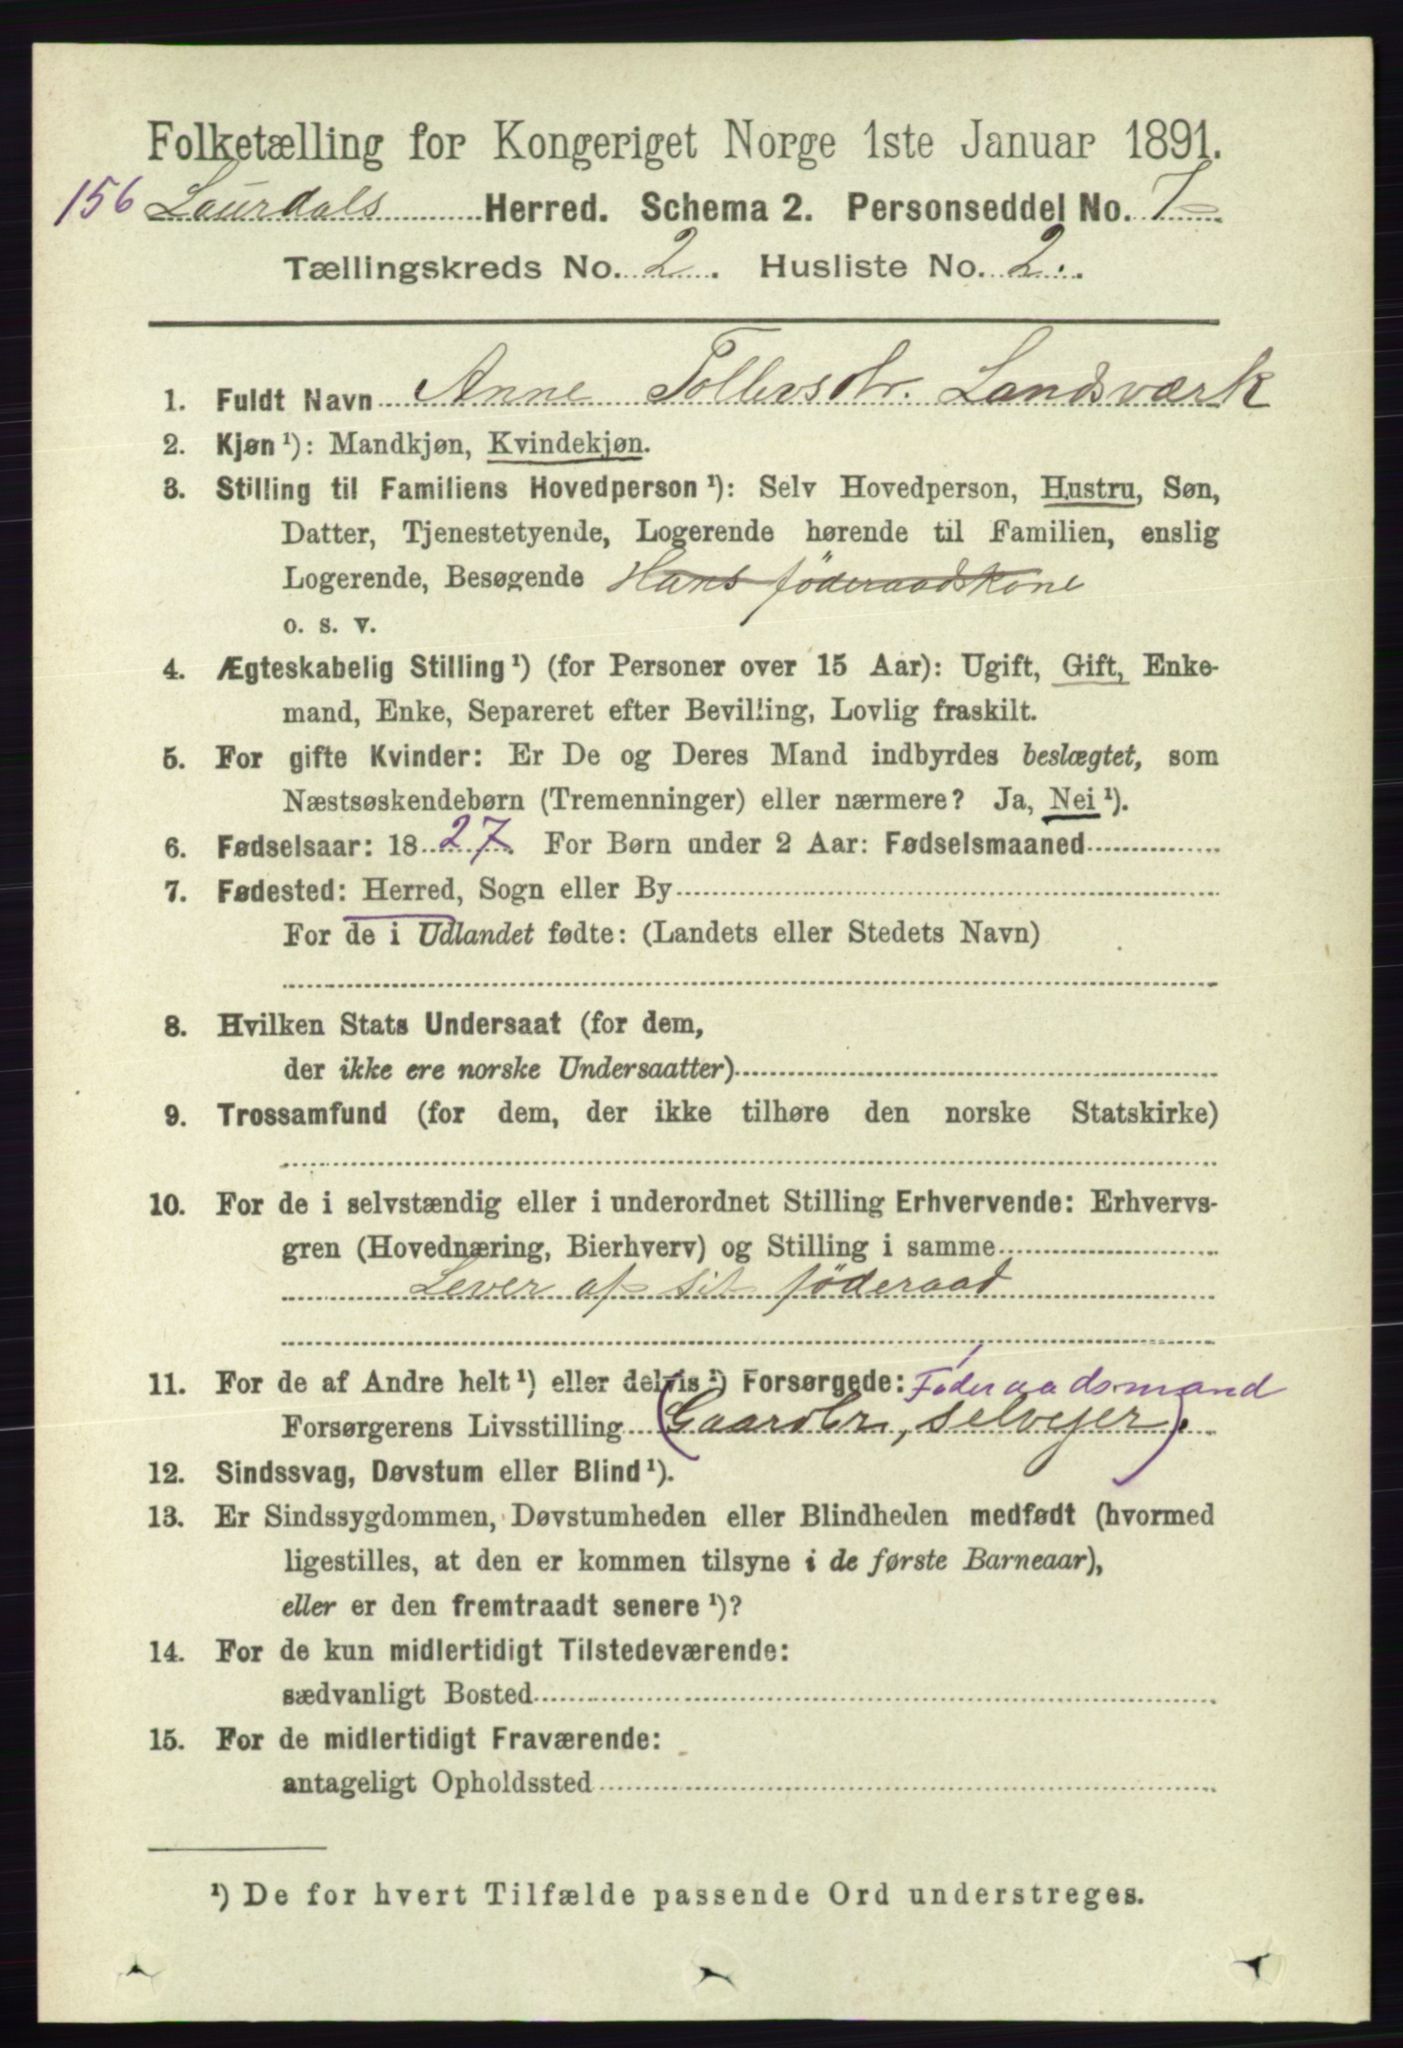 Folketælling for Kongeriget Norge 1ste Januar 1891.
156 Laurdals Herred. Schema 2. Personseddel No. 7
Tællingskreds No. 2. Husliste No. 2.
1. Fuldt Navn Anne Tollevsdtr. Landsværk
2. Kjøn ¹): Mandkjøn, Kvindekjøn.
3. Stilling til Familiens Hovedperson ¹): Selv Hovedperson, Hustru, Søn,
Datter, Tjenestetyende, Logerende hørende til Familien, enslig
Logerende, Besøgende Hans föderaadskone
o. s. v.
4. Ægteskabelig Stilling ¹) (for Personer over 15 Aar): Ugift, Gift, Enke-
mand, Enke, Separeret efter Bevilling, Lovlig fraskilt.
5. For gifte Kvinder: Er De og Deres Mand indbyrdes beslægtet, som
Næstsøskendebørn (Tremenninger) eller nærmere? Ja, Nei ¹).
6. Fødselsaar: 1827. For Børn under 2 Aar: Fødselsmaaned
7. Fødested: Herred, Sogn eller By
For de i Udlandet fødte: (Landets eller Stedets Navn)
8. Hvilken Stats Undersaat (for dem,
der ikke ere norske Undersaatter)
9. Trossamfund (for dem, der ikke tilhøre den norske Statskirke)
10. For de i selvstændig eller i underordnet Stilling Erhvervende: Erhvervs-
gren (Hovednæring, Bierhverv) og Stilling i samme
Lever af sit föderaad
11. For de af Andre helt ¹) eller delvis ¹) Forsørgede: Föderaadsmand
Forsørgerens Livsstilling (Gaardbr, selvejer).
12. Sindssvag, Døvstum eller Blind ¹).
13. Er Sindssygdommen, Døvstumheden eller Blindheden medfødt (hvormed
ligestilles, at den er kommen tilsyne i de første Barneaar),
eller er den fremtraadt senere ¹)?
14. For de kun midlertidigt Tilstedeværende:
sædvanligt Bosted
15. For de midlertidigt Fraværende:
antageligt Opholdssted
¹) De for hvert Tilfælde passende Ord understreges.